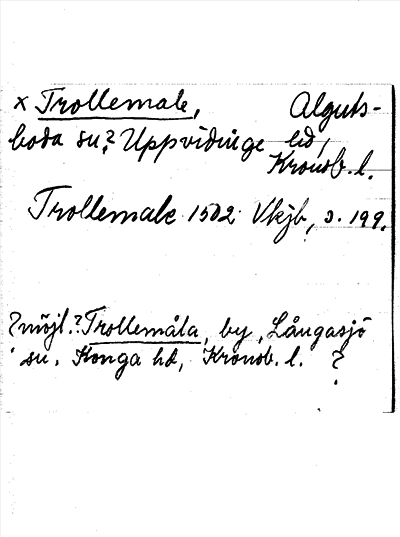 x Trollemale, Alguts-
boda sn,? Uppvidinge hd,
Kronob. l.
Trollemale 1502 Vkjb, s. 199.
? möjl.? Trollemåla, by, Långasjö
sn. Konga hd, Kronob. l. ?